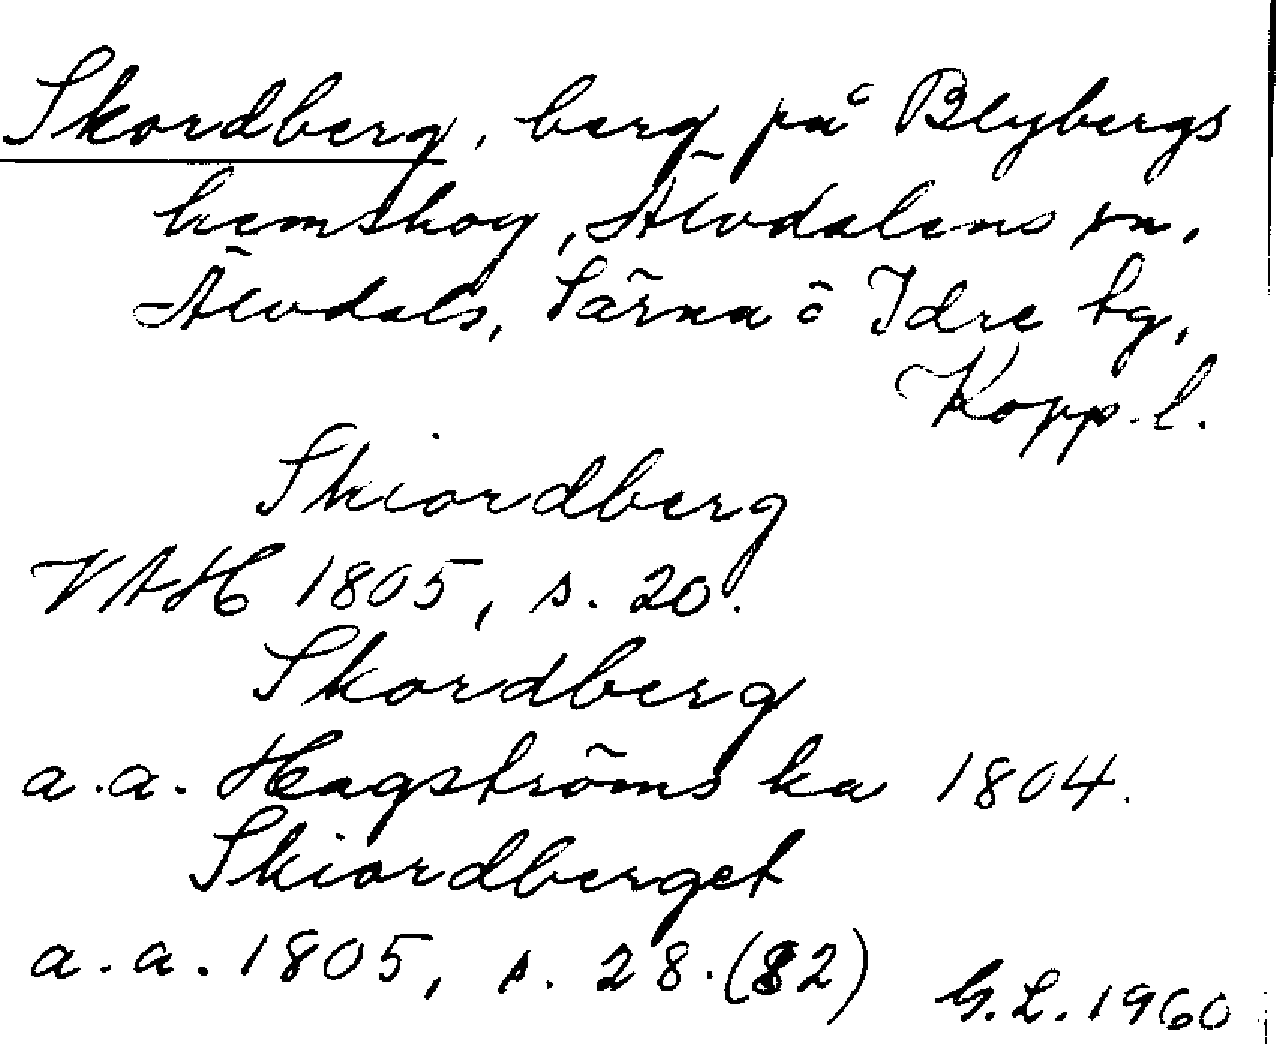 Skordberg, berg på Blybergs
hemskog, Älvdalens sn,
Älvdals, Särna ō Idre tg,
Kopp.l.
Skiordberg
VAH 1805, s. 20.
Skordberg
a.a. Hagströms ka 1804.
Skiordberget
a.a. 1805, s. 28. (82)
G.L. 1960